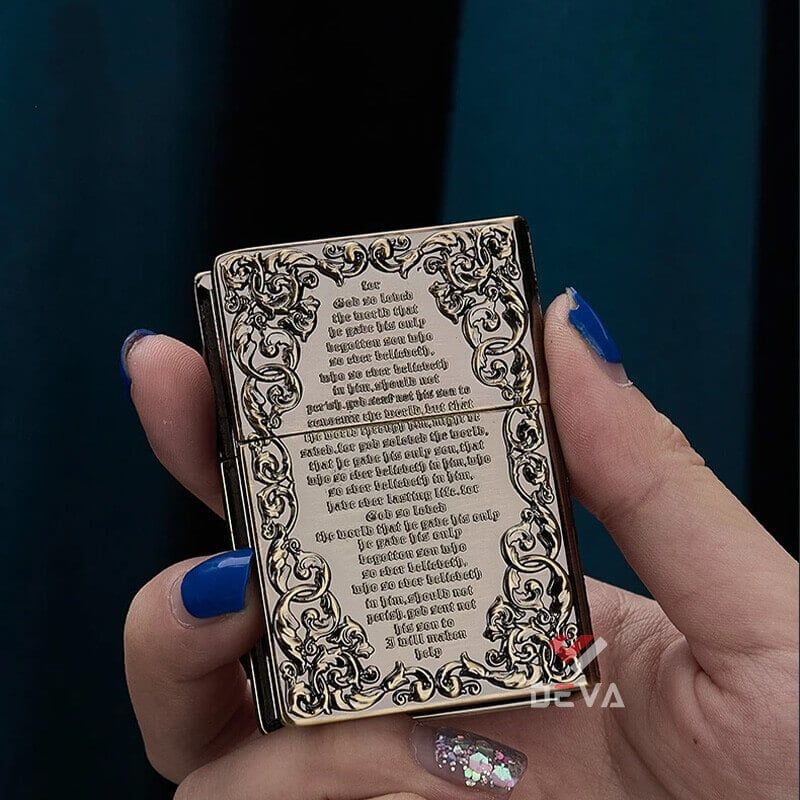 for
God so loved
the world that
he gave his only
begotten son who
so ever believeth,
who so ever believeth
in him, should not
perish. god sent not his son to
condemn the world, but that
the world through him, might be
saved. for god soloved the world,
that he gave his only son, that
who so ever believeth in him, who
so ever believeth in him,
have ever lasting life. for
God so loved
the world that he gave his only
he gave his only
begotten son who
so ever believeth,
who so ever believeth
in him, should not
perish. god sent not
his son to
I will maken
help
DEVA